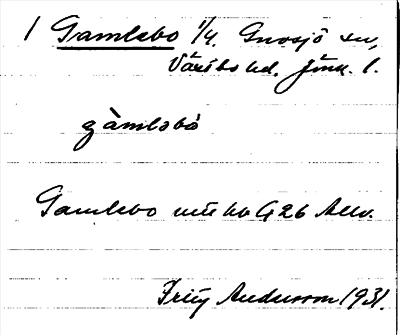 1 Gamlebo 1/4. Gnosjö sn,
Västbo hd. Jönk. l.
gàmləbò
Gamlebo mtl 426 Allv.
Fritz Andersson 1931.